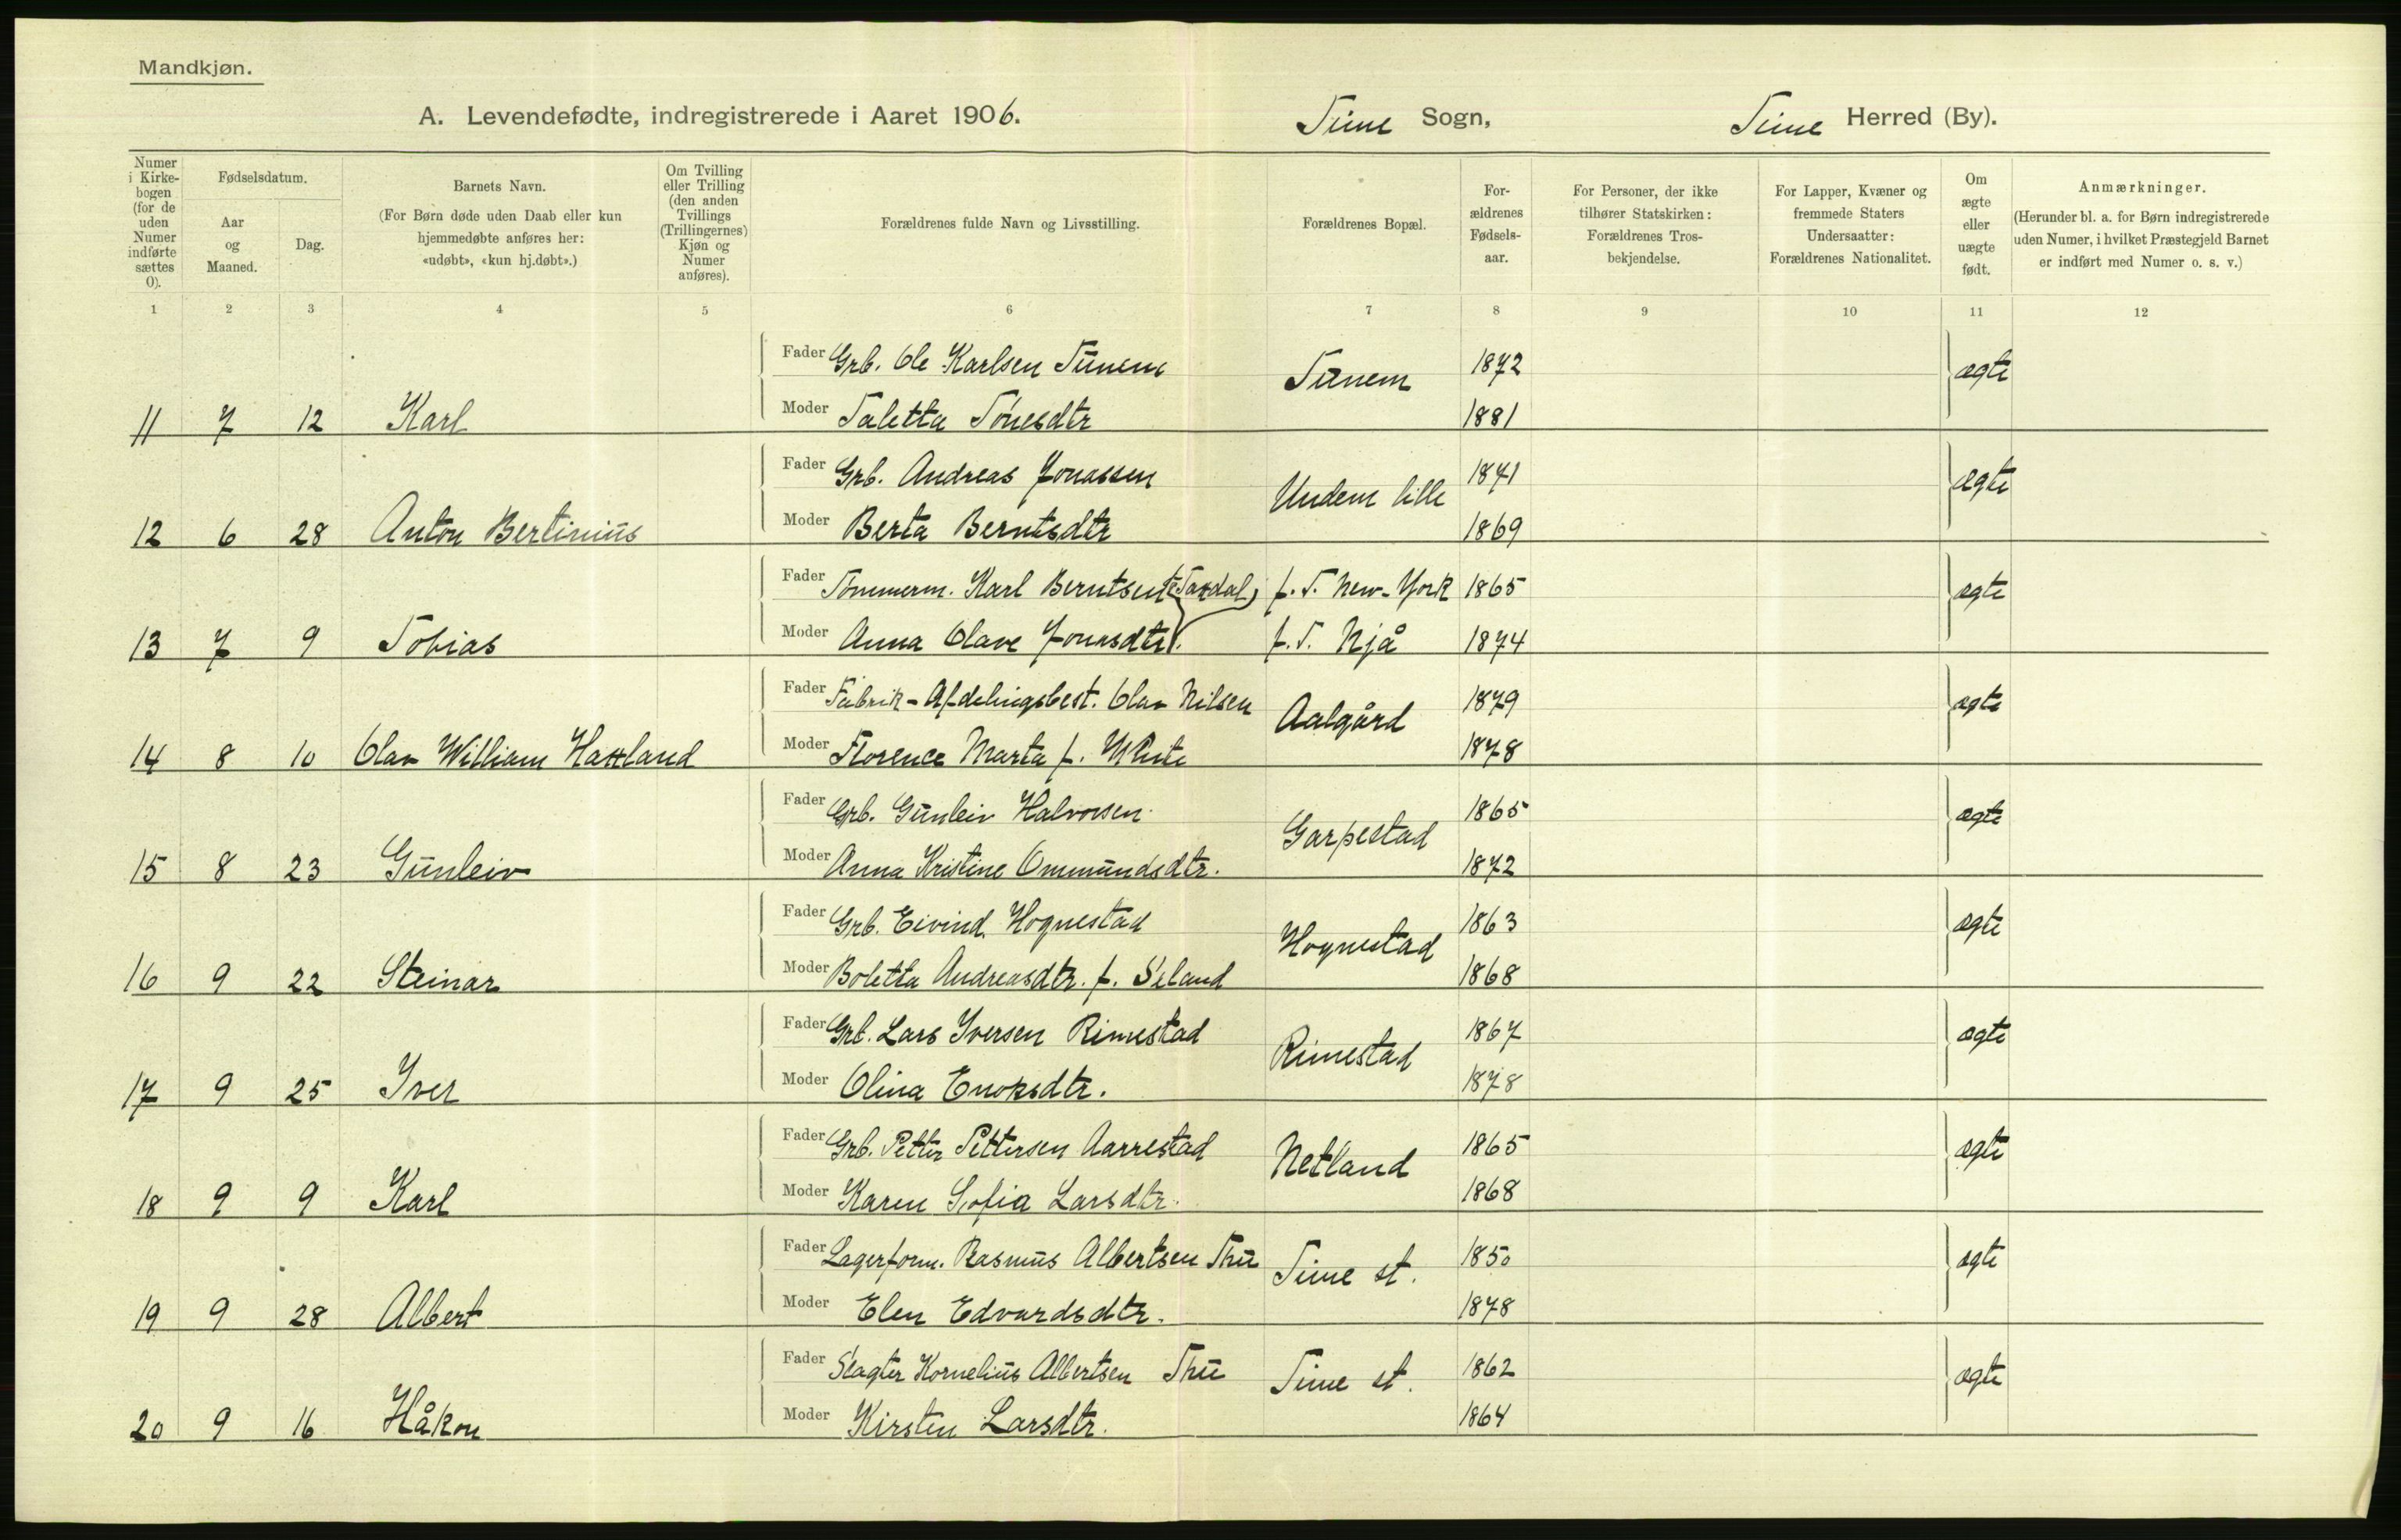 Mandkjøn.
A. Levendefødte, indregistrerede i Aaret 1906. Time Sogn, Time Herred (By).
Numer i Kirkebogen (for de uden Numer indførte sættes 0).
Fødselsdatum.
Aar og Maaned.
Dag.
Barnets Navn.
(For Børn døde uden Daab eller kun hjemmedøbte anføres her: «udøbt», «kun hj.døbt».)
Om Tvilling eller Trilling (den anden Tvillings (Trillingernes) Kjøn og Numer anføres).
Forældrenes fulde Navn og Livsstilling.
Forældrenes Bopæl.
Forældrenes Fødselsaar.
For Personer, der ikke tilhører Statskirken: Forældrenes Trosbekjendelse.
For Lapper, Kvæner og fremmede Staters Undersaatter: Forældrenes Nationalitet.
Om ægte eller uægte født.
Anmærkninger.
(Herunder bl. a. for Børn indregistrerede uden Numer, i hvilket Præstegjeld Barnet er indført med Numer o. s. v.)
1 2 3 4 5 6 7 8 9 10 11 12
Fader Grb. Ole Karlsen Tunem Tunem 1872 ægte
11 7 12 Karl Moder Taletta Tonesdtr 1881
Fader Grb. Andreas Jonassen Undem lille 1841 ægte
12 6 28 Anton Bertinius Moder Berta Berntsdtr 1869
Fader Tømmerm. Karl Berntsen Taxdal f. T. New-York 1865 ægte
13 7 9 Tobias Moder Anna Olave Jonasdtr. f. T. Njå 1874
Fader Fabrik-Afdelingsbest. Olav Nilsen Aalgård 1879 ægte
14 8 10 Olav William Hattland Moder Florence Marta f. White 1878
Fader Grb. Gunleiv Halvorsen Garpestad 1865 ægte
15 8 23 Gunleiv Moder Anna Kristine Ommundsdtr. 1872
Fader Grb. Eivind Hognestad Hognestad 1863 ægte
16 9 22 Steinar Moder Boletta Andreasdtr. f. Seland 1868
Fader Grb. Lars Iversen Rimestad Rimestad 1867 ægte
17 9 25 Iver Moder Olina Enoksdtr. 1878
Fader Grb. Petter Pettersen Aarrestad Netland 1865 ægte
18 9 9 Karl Moder Karen Sofia Larsdtr. 1868
Fader Lagerform. Rasmus Albertsen Thu Time st. 1850 ægte
19 9 28 Albert Moder Elen Edvardsdtr. 1878
Fader Slagter Kornelius Albertsen Thu Time st. 1862 ægte
20 9 16 Håkon Moder Kirsten Larsdtr. 1864